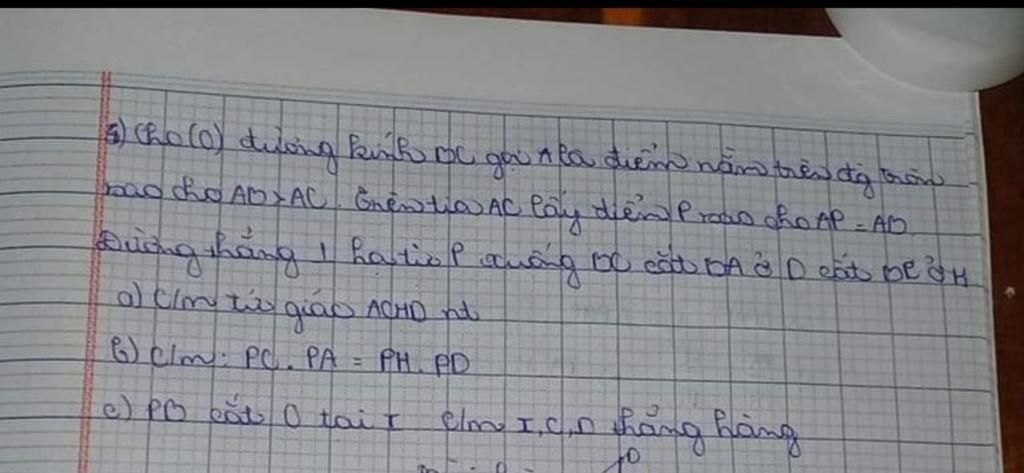 5) Cho (O) đường kính BC gọi A là điểm nằm trên đg tròn
sao cho AB > AC. Trên tia AC lấy điểm P sao cho AP = AB.
Đường thẳng ⊥ hạ từ P xuống BC cắt BA ở D cắt BC ở H
a) C/m tứ giác ACHD nt
b) C/m: PC. PA = PH. PD
c) PB cắt O tại I C/m I, C, D thẳng hàng